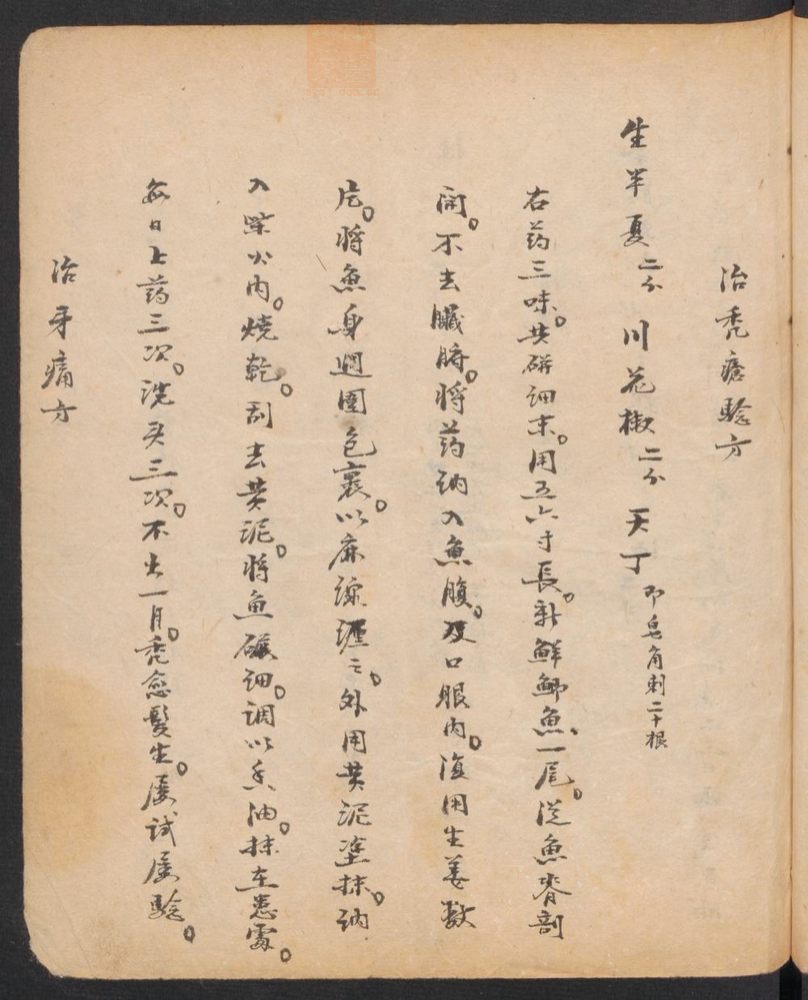 治秃瘡騐方
生半夏二个 川花椒二个 天丁即皂角刺二十根
右药三味。共硏細末。用五六寸長。新鮮鲫魚一尾。從魚脊剖
開。不去臟腑。將药纳入魚腹。及口眼内。復用生姜数
片。將魚身週圍包裹。以麻線纒之。外用黄泥塗抹。纳
入柴火内。燒乾。刮去黄泥。將魚碾細。调以香油。抹在患處。
每日上药三次。洗头三次。不出一月。秃愈髮生。屡试屡騐。
治牙痛方